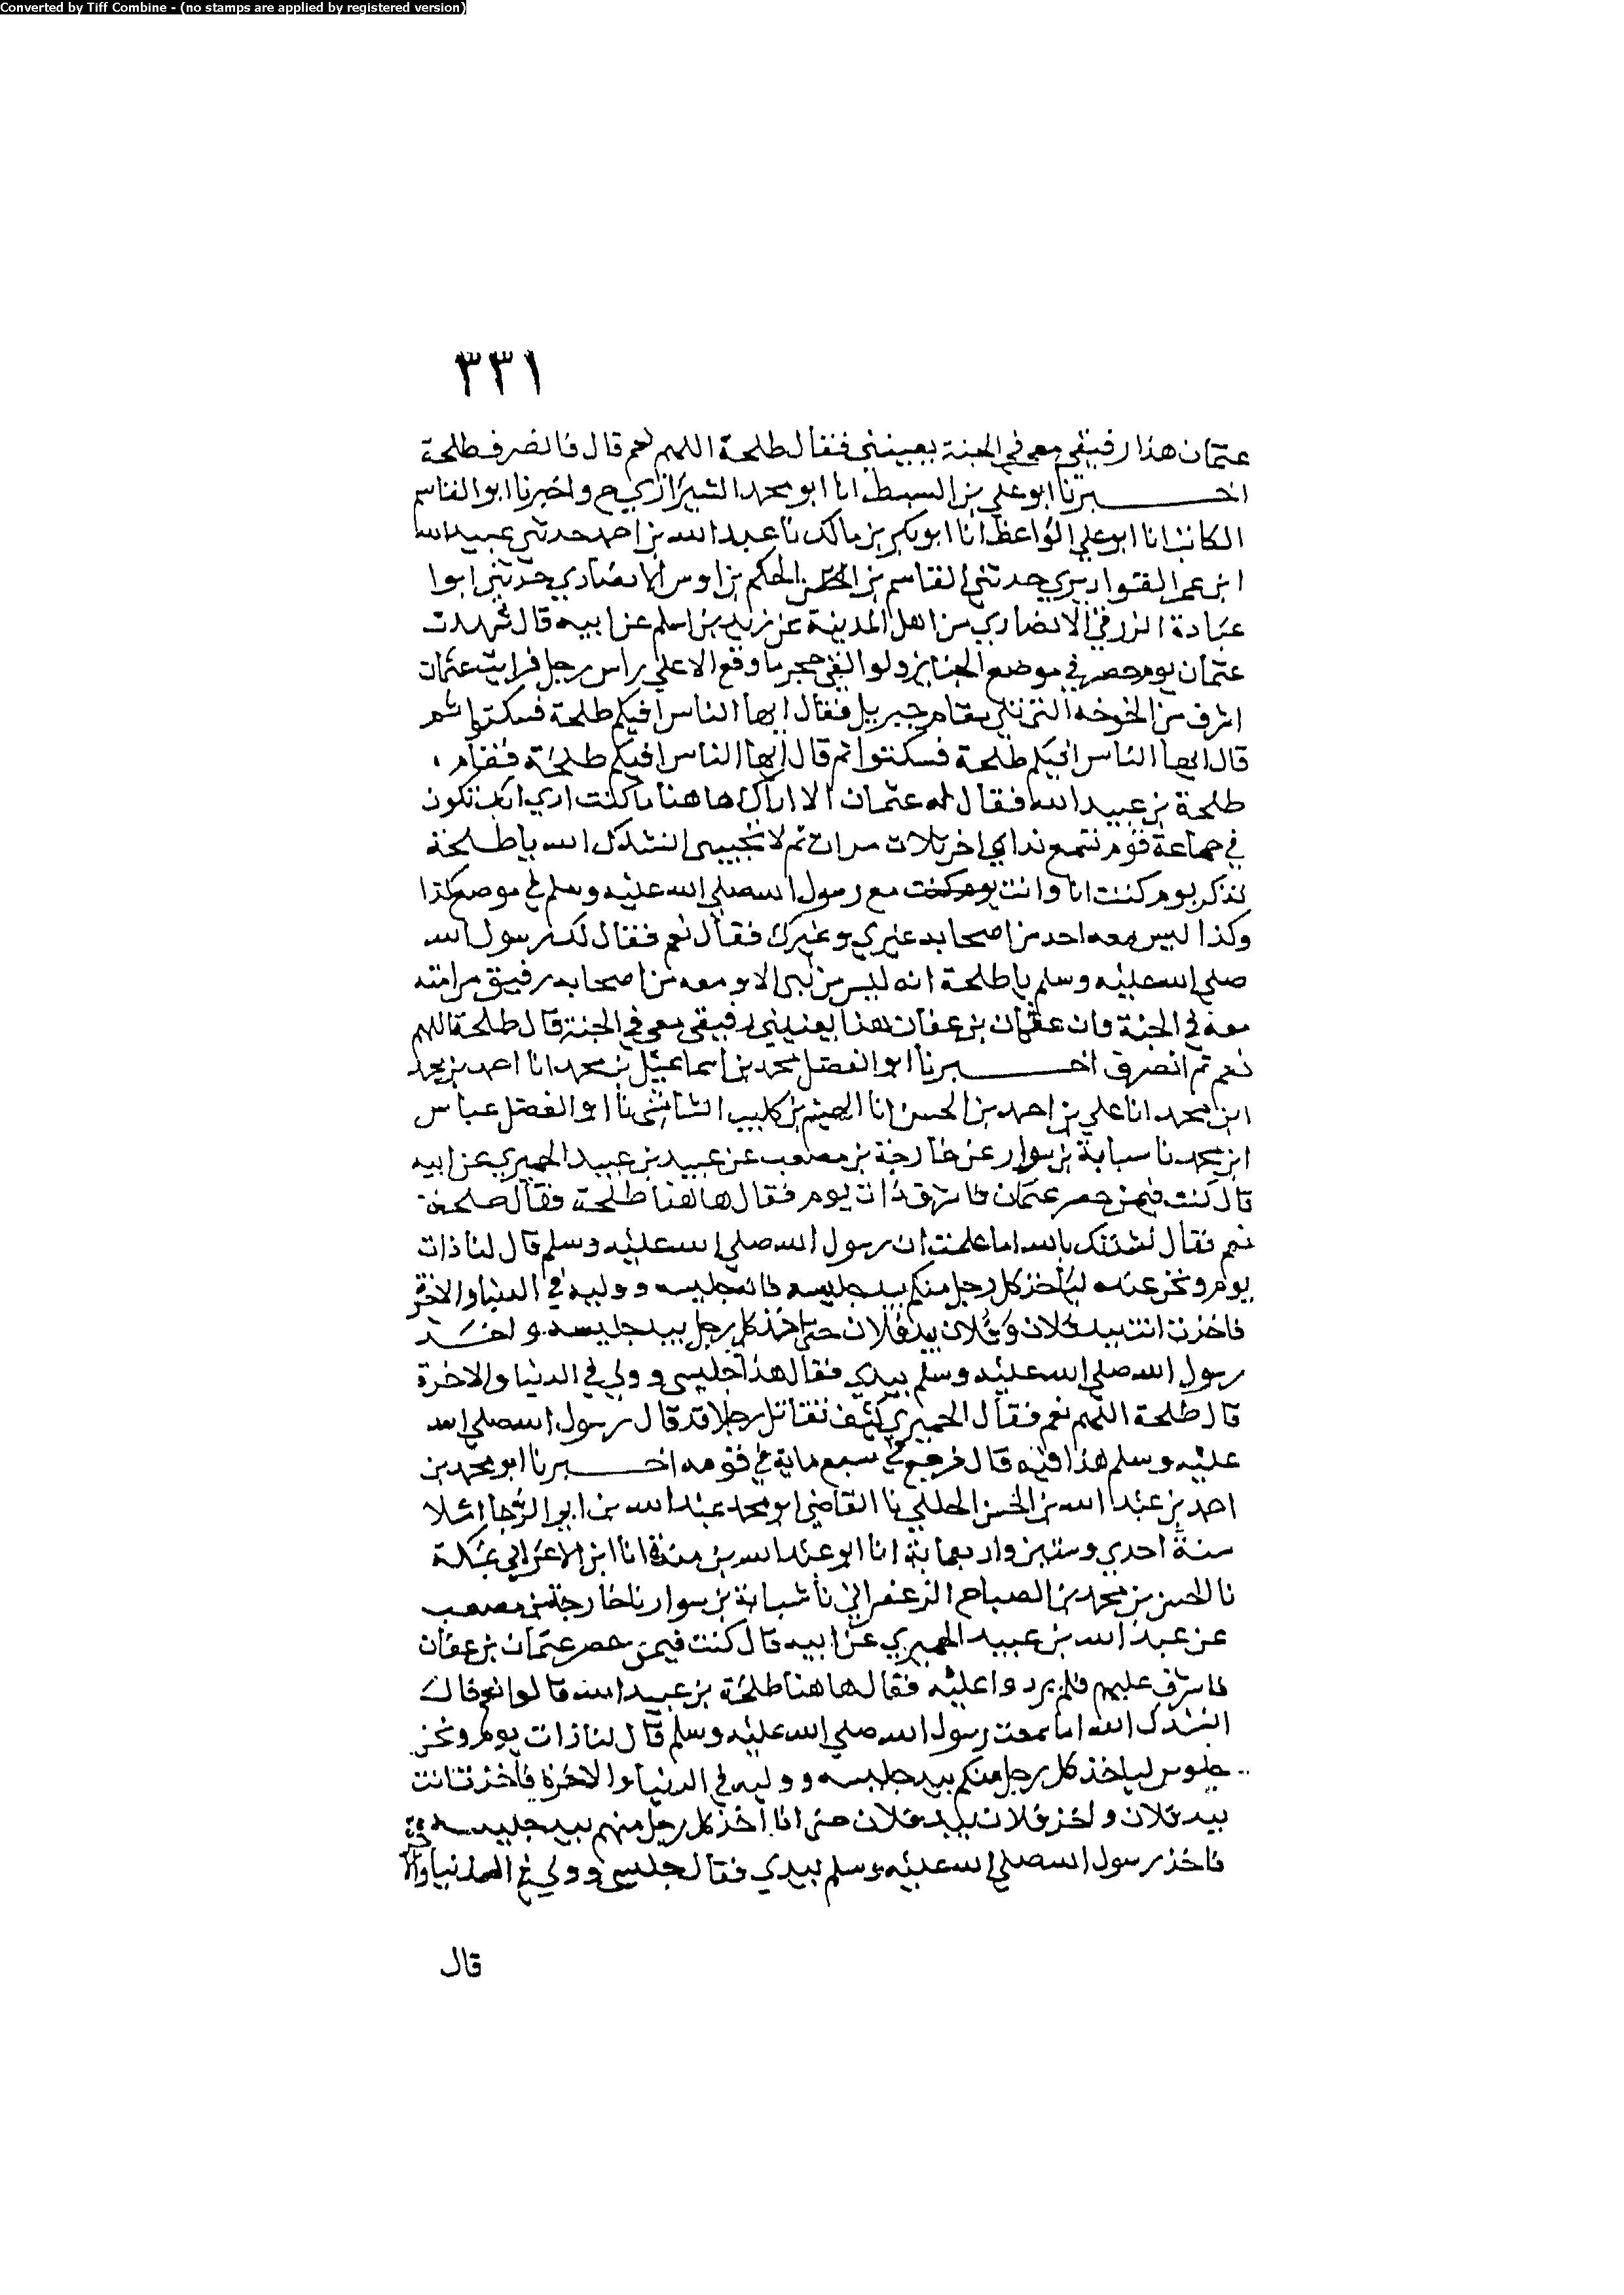 Converted by Tiff Combine - (no stamps are applied by registered version)
٣٣١
عثمان هذا رفيقي معي في الجنة يعينني فقال طلحة اللهم نعم قال فانصرف طلحة
اخبرنا ابو علي بن السبط انا ابو محمد الشيرازي ح واخبرنا ابو القاسم
الكاتب انا ابو علي الواعظ انا ابو بكر بن مالك نا عبد الله بن احمد حدثني عبيد الله
ابن عمر القواريري حدثني القاسم بن الحكم بن اوس الانصاري حدثني ابوا
عبادة الزرقي الانصاري من اهل المدينة عن زيد بن اسلم عن ابيه قال شهدت
عثمان يوم حصر في موضع الجنايز ولو القي حجر ما وقع الا علي راس رجل فرايت عثمان
اشرف من الخوخه التي تلي مقام جبريل فقال ايها الناس افيكم طلحة فسكتوا ثم
قال ايها الناس افيكم طلحة فسكتوا ثم قال ايها الناس افيكم طلحة فقام
طلحة بن عبيد الله فقال له عثمان الا اراك هاهنا ما كنت اري انك تكون
في جماعة قوم تسمع نداي اخر ثلاث مرات ثم لا تجيبني انشدك الله يا طلحة
تذكر يوم كنت انا وانت يوم كنت مع رسول الله صلي الله عليه وسلم في موضع كذا
وكذا ليس معه احد من اصحابه غيري وغيرك فقال نعم فقال لك رسول الله
صلي الله عليه وسلم يا طلحة انه ليس من نبي الا ومعه من اصحابه رفيق من امته
معه في الجنة وان عثمان بن عفان هذا يعنيني رفيقي معي في الجنة قال طلحة اللهم
نعم ثم انصرف اخبرنا ابو الفضل محمد بن اسماعيل بن محمد انا احمد بن محمد
ابن محمد انا علي بن احمد بن الحسن انا الهيثم بن كليب الشاشي نا ابو الفضل عباس
ابن محمد نا سبابة بن سوار عن خارجة بن مصعب عن عبيد بن عبيد الحميري عن ابيه
قال كنت فيمن حصر عثمان فاشرف ذات يوم فقال هاهنا طلحة فقال طلحة
نعم فقال نشدتك بالله اما علمت ان رسول الله صلي الله عليه وسلم قال لنا ذات
يوم ونحن عنده لياخذ كل رجل منكم بيد جليسه فانه جليسه ووليه في الدنيا والاخرة
فاخذت انت بيد فلان وفلان بيد فلان حتي اخذ كل رجل بيد جليسه واخذ
رسول الله صلي الله عليه وسلم بيدي فقال هذا جليسي وولي في الدنيا والاخرة
قال طلحة اللهم نعم فقال الحميري كيف نقاتل رجلا قد قال رسول الله صلي الله
عليه وسلم هذا فيه قال فرجع في سبع ماية في قومه اخبرنا ابو محمد بن
احمد بن عبد الله بن الحسن الحلبي نا القاضي ابو محمد عبد الله بن ابو الرجا املا
سنة احدي وستين واربعماية انا ابو عبد الله بن مندة انا ابن الاعرابي بمكة
نا الحسن بن محمد بن الصباح الزعفراني نا شبابة بن سوار نا خارجة بن مصعب
عن عبد الله بن عبيد الحميري عن ابيه قال كنت فيمن حصر عثمان بن عفان
فاشرف عليهم فلم يردوا عليه فقال هاهنا طلحة بن عبيد الله قالوا نعم قال
انشدك الله اما سمعت رسول الله صلي الله عليه وسلم قال لنا ذات يوم ونحن
جلوس لياخذ كل رجل منكم بيد جليسه ووليه في الدنيا والاخرة فاخذت انت
بيد فلان واخذ فلان بيد فلان حتي اخذ كل رجل منهم بيد جليسه
فاخذ رسول الله صلي الله عليه وسلم بيدي فقال جليسي وولي في الدنيا والا
قال